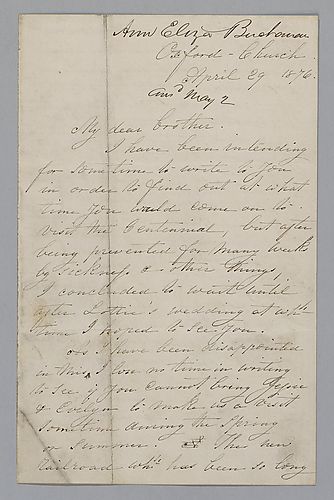 Ann Eliza Buchanan
Oxford - Church
April 29 1876.
ansd May 2
My dear brother.
I have been intending
for some time to write to you
in order to find out at what
time you would come on to
visit the Centennial, but after
being prevented for many weeks
by sickness & other things,
I concluded to wait until
after Lottie's wedding at whh
time I hoped to see you.
As I have been disappointed
in this, I lose no time in writing
to see if you cannot bring Jessie
& Evelyn to make us a visit
sometime during the Spring
or summer. The new
Railroad whh has been so long